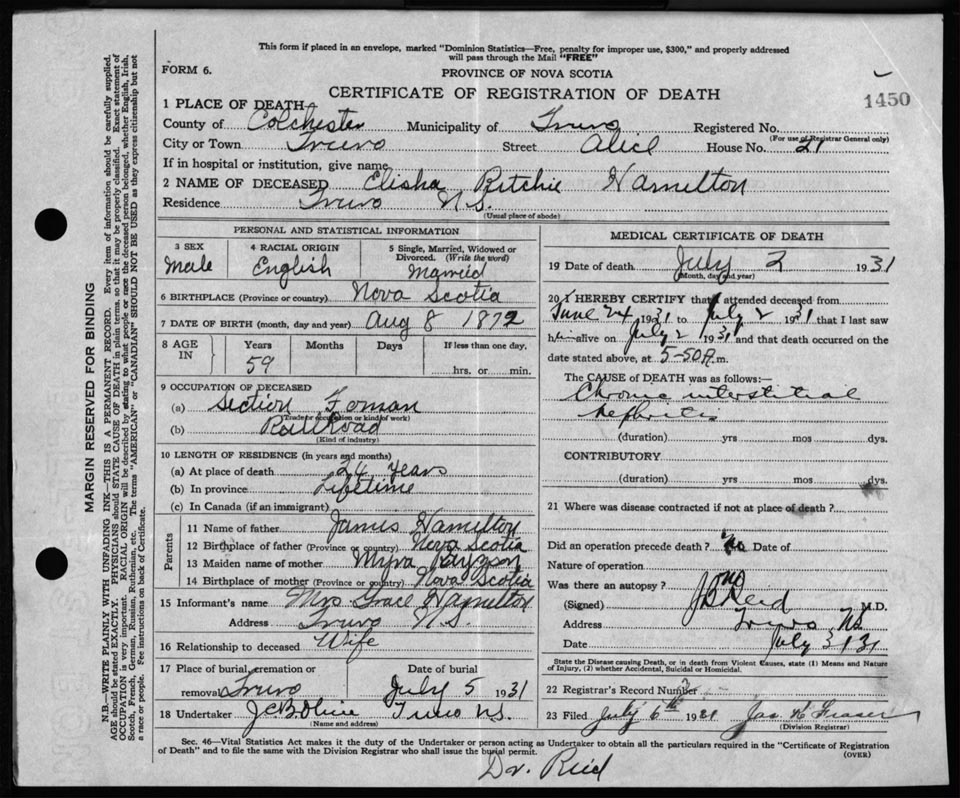 This form if placed in an envelope, marked "Dominion Statistics—Free, penalty for improper use, $300," and properly addressed
will pass through the Mail "FREE"
FORM 6.
PROVINCE OF NOVA SCOTIA
CERTIFICATE OF REGISTRATION OF DEATH
1450
1 PLACE OF DEATH
County of Colchester Municipality of Truro Registered No.
(For use of Registrar General only)
City or Town Truro Street Alice House No. 21
If in hospital or institution, give name
2 NAME OF DECEASED Elisha Ritchie Hamilton
Residence Truro N.S.
(Usual place of abode)
MARGIN RESERVED FOR BINDING
N.B.—WRITE PLAINLY WITH UNFADING INK—THIS IS A PERMANENT RECORD. Every item of information should be carefully supplied.
AGE should be stated EXACTLY. PHYSICIANS should STATE CAUSE OF DEATH in plain terms, so that it may be properly classified. Exact statement of
OCCUPATION is very important. RACIAL ORIGIN will be described by stating to what people or race the deceased person belonged, whether English, Irish,
Scotch, French, German, Russian, Ruthenian, etc. The terms "AMERICAN" or "CANADIAN" SHOULD NOT BE USED as they express citizenship but not
a race or people. See instructions on back of Certificate.
PERSONAL AND STATISTICAL INFORMATION
3 SEX
Male
4 RACIAL ORIGIN
English
5 Single, Married, Widowed or
Divorced. (Write the word)
Married
6 BIRTHPLACE (Province or country) Nova Scotia
7 DATE OF BIRTH (month, day and year) Aug 8 1872
8 AGE IN
Years Months Days If less than one day.
59 hrs. or min.
9 OCCUPATION OF DECEASED
(a) Section Forman
(Trade or occupation or kind of work)
(b) Railroad
(Kind of industry)
10 LENGTH OF RESIDENCE (in years and months)
(a) At place of death 24 years
(b) In province Lifetime
(c) In Canada (if an immigrant)
Parents
11 Name of father James Hamilton
12 Birthplace of father (Province or country) Nova Scotia
13 Maiden name of mother Myra
14 Birthplace of mother (Province or country) Nova Scotia
15 Informant's name Mrs Grace Hamilton
Address Truro N.S.
16 Relationship to deceased Wife
17 Place of burial, cremation or
removal Truro
Date of burial
July 5 1931
18 Undertaker Truro N.S.
(Name and address)
MEDICAL CERTIFICATE OF DEATH
19 Date of death July 2 1931
(Month, day and year)
20 I HEREBY CERTIFY that I attended deceased from
June 24 1931 to July 2 1931 that I last saw
him alive on July 2 1931 and that death occurred on the
date stated above, at 5-50 A.m.
The CAUSE OF DEATH was as follows:
Chronic interstitial
nephritis
(duration) yrs mos dys.
CONTRIBUTORY
(duration) yrs. mos. dys.
21 Where was disease contracted if not at place of death?
Did an operation precede death? No Date of
Nature of operation
Was there an autopsy? no
(Signed) Reid M.D.
Address Truro NS
Date July 3/31
State the Disease causing Death, or in death from Violent Causes, state (1) Means and Nature
of Injury, (2) whether Accidental, Suicidal or Homicidal.
22 Registrar's Record Number
23 Filed July 6th 1931 Jas H Fraser
(Division Registrar)
Sec. 46—Vital Statistics Act makes it the duty of the Undertaker or person acting as Undertaker to obtain all the particulars required in the "Certificate of Registration
of Death" and to file the same with the Division Registrar who shall issue the burial permit.
(OVER)
Dr. Reid